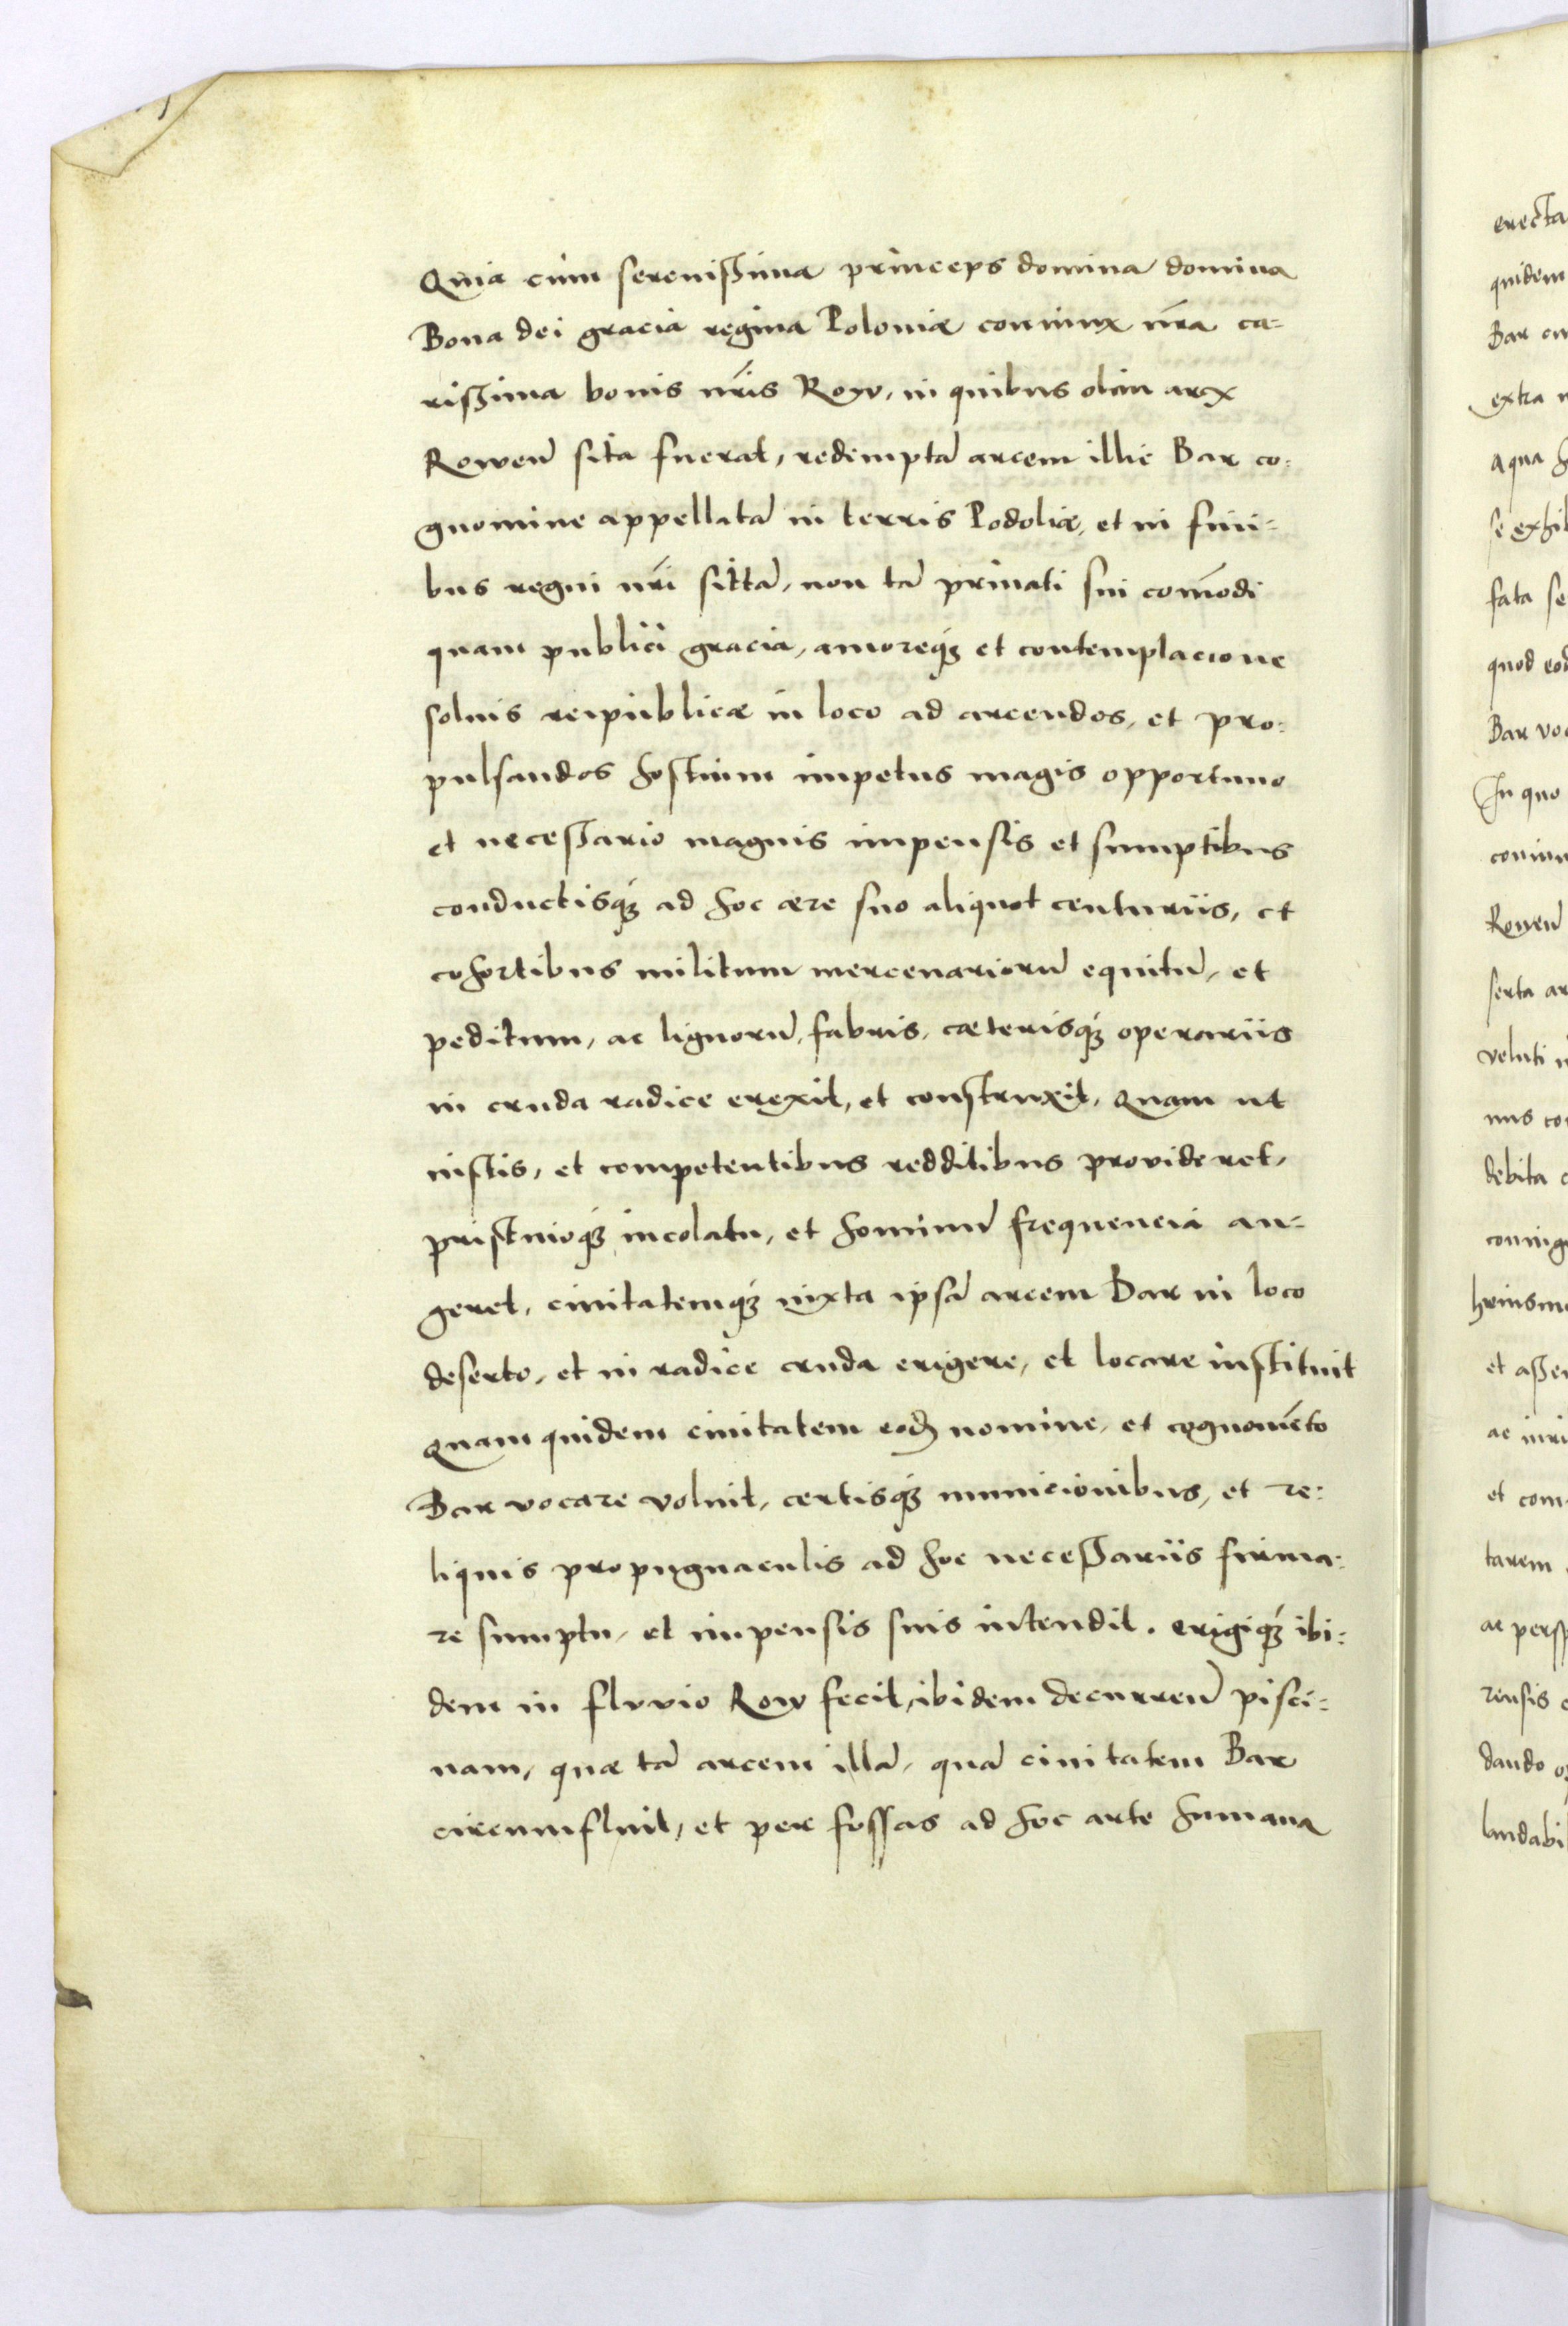 Quia cum serenissima princeps domina domina
Bona dei gracia regina Poloniæ coniunx nr̃a ca-
rissima bonis nr̃is Row, in quibus olim arx
Rowen̄ sita fuerat, redemptā arcem illic Bar co-
gnomine appellatā in terris Podoliæ, et in fini-
bus regni nr̃i sittā, non tā priuati sui com̄odi
quam publici gracia, amoreqꝫ et contemplacione
soluis reipublicæ in loco ad arcendos, et pro-
pulsandos hostium impetus magis opportuno
et necessario magnis impensis et sumptibus
conductisqꝫ ad hoc aere suo aliquot centuriis, et
cohortibus militum mercenariorū equitū, et
peditum, ac lignorū, fabris, cæterisqꝫ operariis
in cruda radice erexit, et construxit, Quam ut
iustis, et competentibus redditibus provideret,
pristinioqꝫ incolatu, et hominū frequencia au-
geret, ciuitatemqꝫ iuxta ipsā arcem Bar in loco
deserto, et in radice cruda erigere, et locare instituit
Quam quidem ciuitatem eodꝫ nomine, et cognomēto
Bar vocare voluit, certisqꝫ municionibus, et re-
liquis propugnaculis ad hoc necessariis firma-
re sumptu, et impensis suis intendit. erigiqꝫ ibi-
dem in fluvio Row fecit, ibidem decurren̄ pisci-
nam, quæ tā arcem illā, quā ciuitatem Bar
circumfluit, et per fossas ad hoc arte humana
erecta
quidem
Bar
extra
aqua
se
fata
quod
Bar
In quo
Rowen̄
serta
veluti
debita
et
ac
et com
tarem
ac
rensis
dando
laudabi